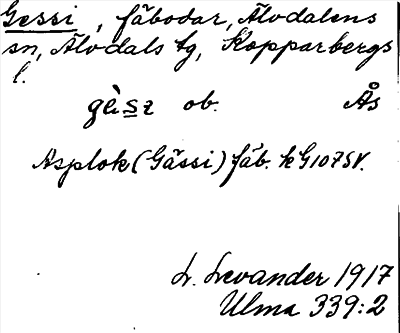 Gessi, fäbodar, Älvdalens
sn, Älvdals tg, Kopparbergs
l.
gès̲z ob. Ås
Asplok (Gässi) fäb. k G107SV.
L. Levander 1917
Ulma 339:2